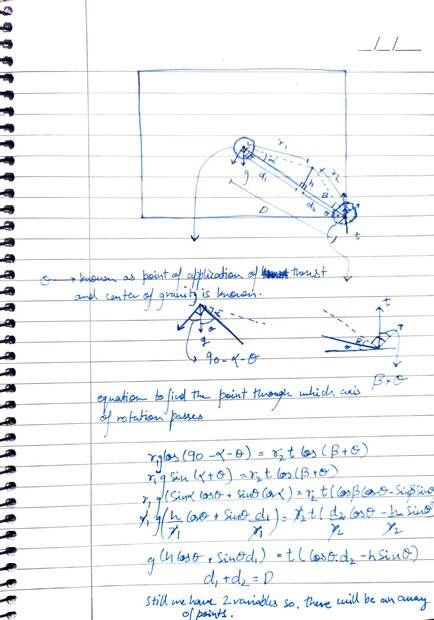 __/__/__
r₁
r₂
α
h
β
g
d₁
d₂
θ
D
t
θ → known as point of application of thrust
and center of gravity is known.
α
θ
g
90 - α - θ
t
θ
β + θ
equation to find the point through which axis
of rotation passes
r₁g cos (90 - α - θ) = r₂ t cos (β + θ)
r₁ g sin (α + θ) = r₂ t cos (β + θ)
r₁ g (sinα cosθ + sinθ cosα) = r₂ t (cosβ cosθ - sinβ sinθ)
r₁ g (h/r₁ cosθ + sinθ d₁/r₁) = r₂ t (d₂/r₂ cosθ - h/r₂ sinθ)
g (h cosθ + sinθ d₁) = t (cosθ d₂ - h sinθ)
d₁ + d₂ = D
still we have 2 variables so, there will be an array
of points.